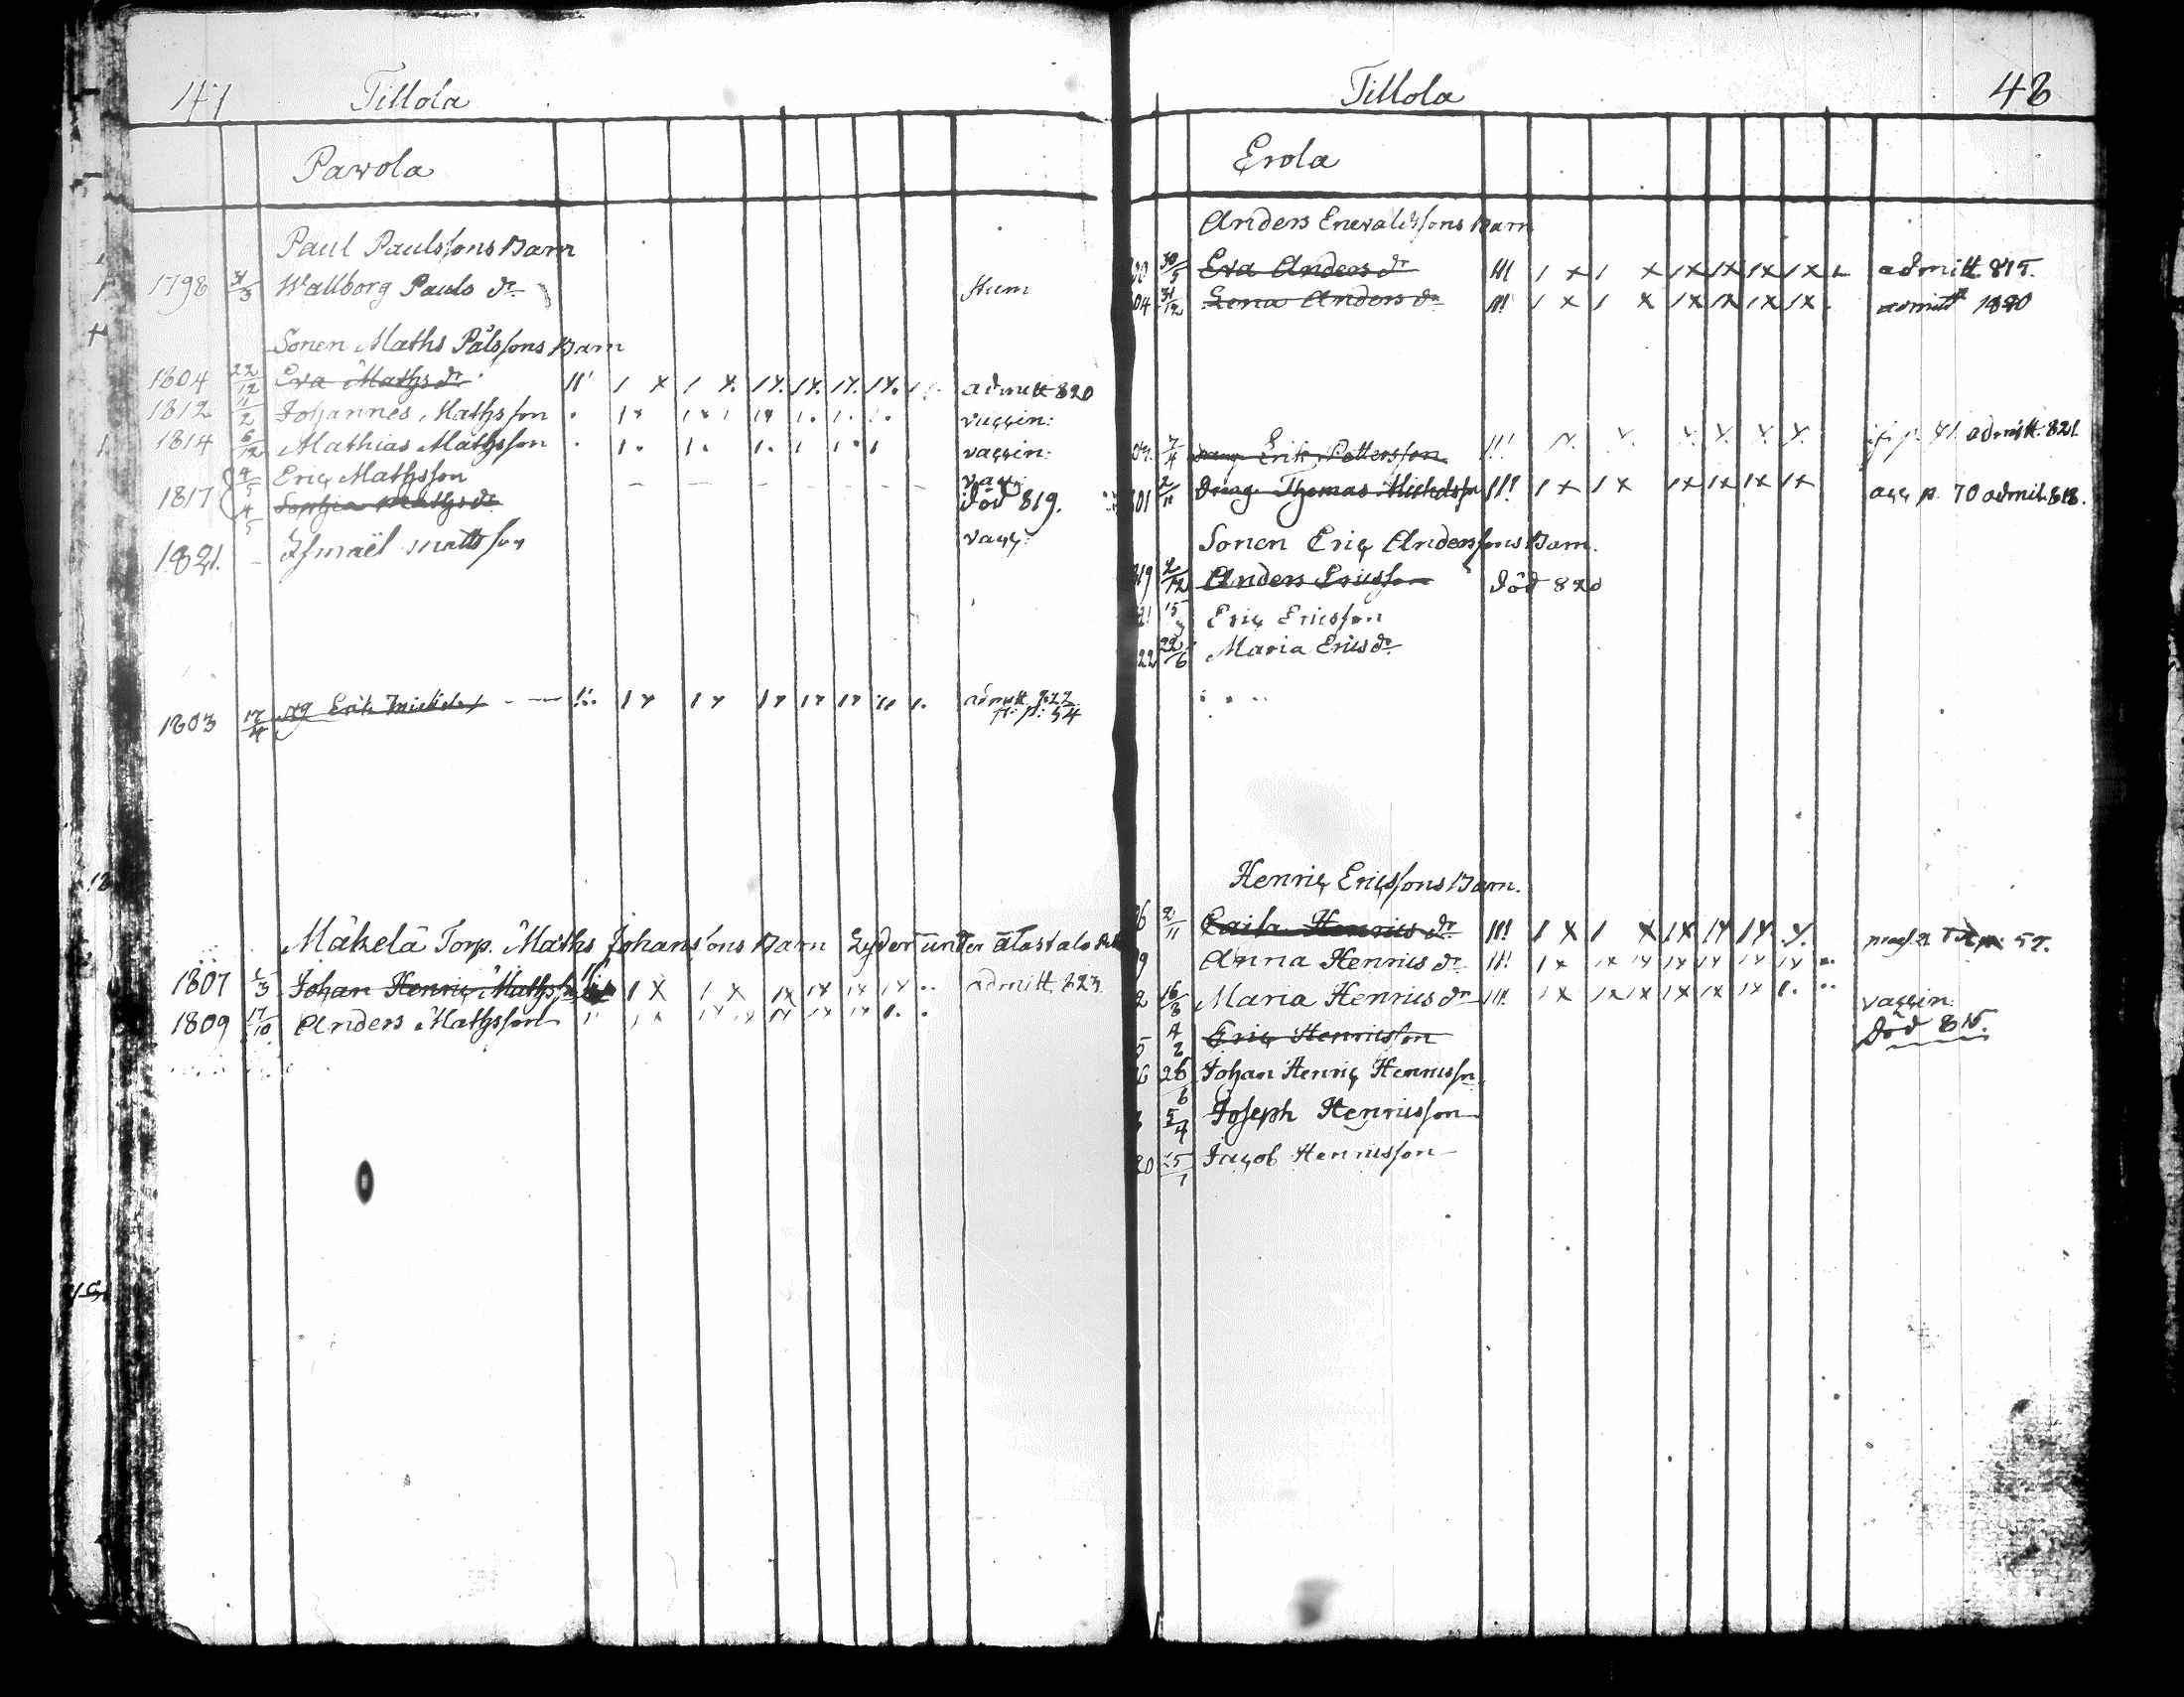 47 Tillola
Pavola
Paul Paulssons Barn
1798 31/3 Wallborg Pauls dr Stum
Sonen Maths Pålssons Barn
1804 22/12 Eva Maths dr admitt 820
1812 11/2 Johannes Mathsson vaccin:
1814 6/12 Mathias Mathsson vaccin:
4/5 Eric Mathsson vacc:
1817 4/5 Sophia Maths dr död 819.
1821. Ismaël Mattsson vacc:
1803 17/4 Erik Mickels admitt 822 p: 54
Mäkelä Torp. Maths Johanssons Barn Lyder under
1807 /3 Johan Henric Mathsson admitt. 823
1809 17/10 Anders Mathsson
Tillola 48
Erola
Anders Enevaldssons Barn
30/5 Eva Anders dr admitt 815.
04 31/12 Lena Anders dr admitt 1820
7/4 Erik Pettersson p. 41. admitt. 821
01 2/11 Dräng Thomas Michelsson acc p. 70 admit. 818.
Sonen Eric Anderssons Barn.
19 2/12 Anders Ericsson död 820
21 15 Eric Ericsson
22 22/6 Maria Erics dr
Henric Ericssons Barn.
06 2/11 Caisa Henrics dr p. 57.
9 Anna Henrics dr
2 16/8 Maria Henrics dr vaccin:
5 4/2 Eric Henricsson död 815.
6 26/6 Johan Henric Henricsson
5/4 Joseph Henricsson
20 25/1 Jacob Henricsson